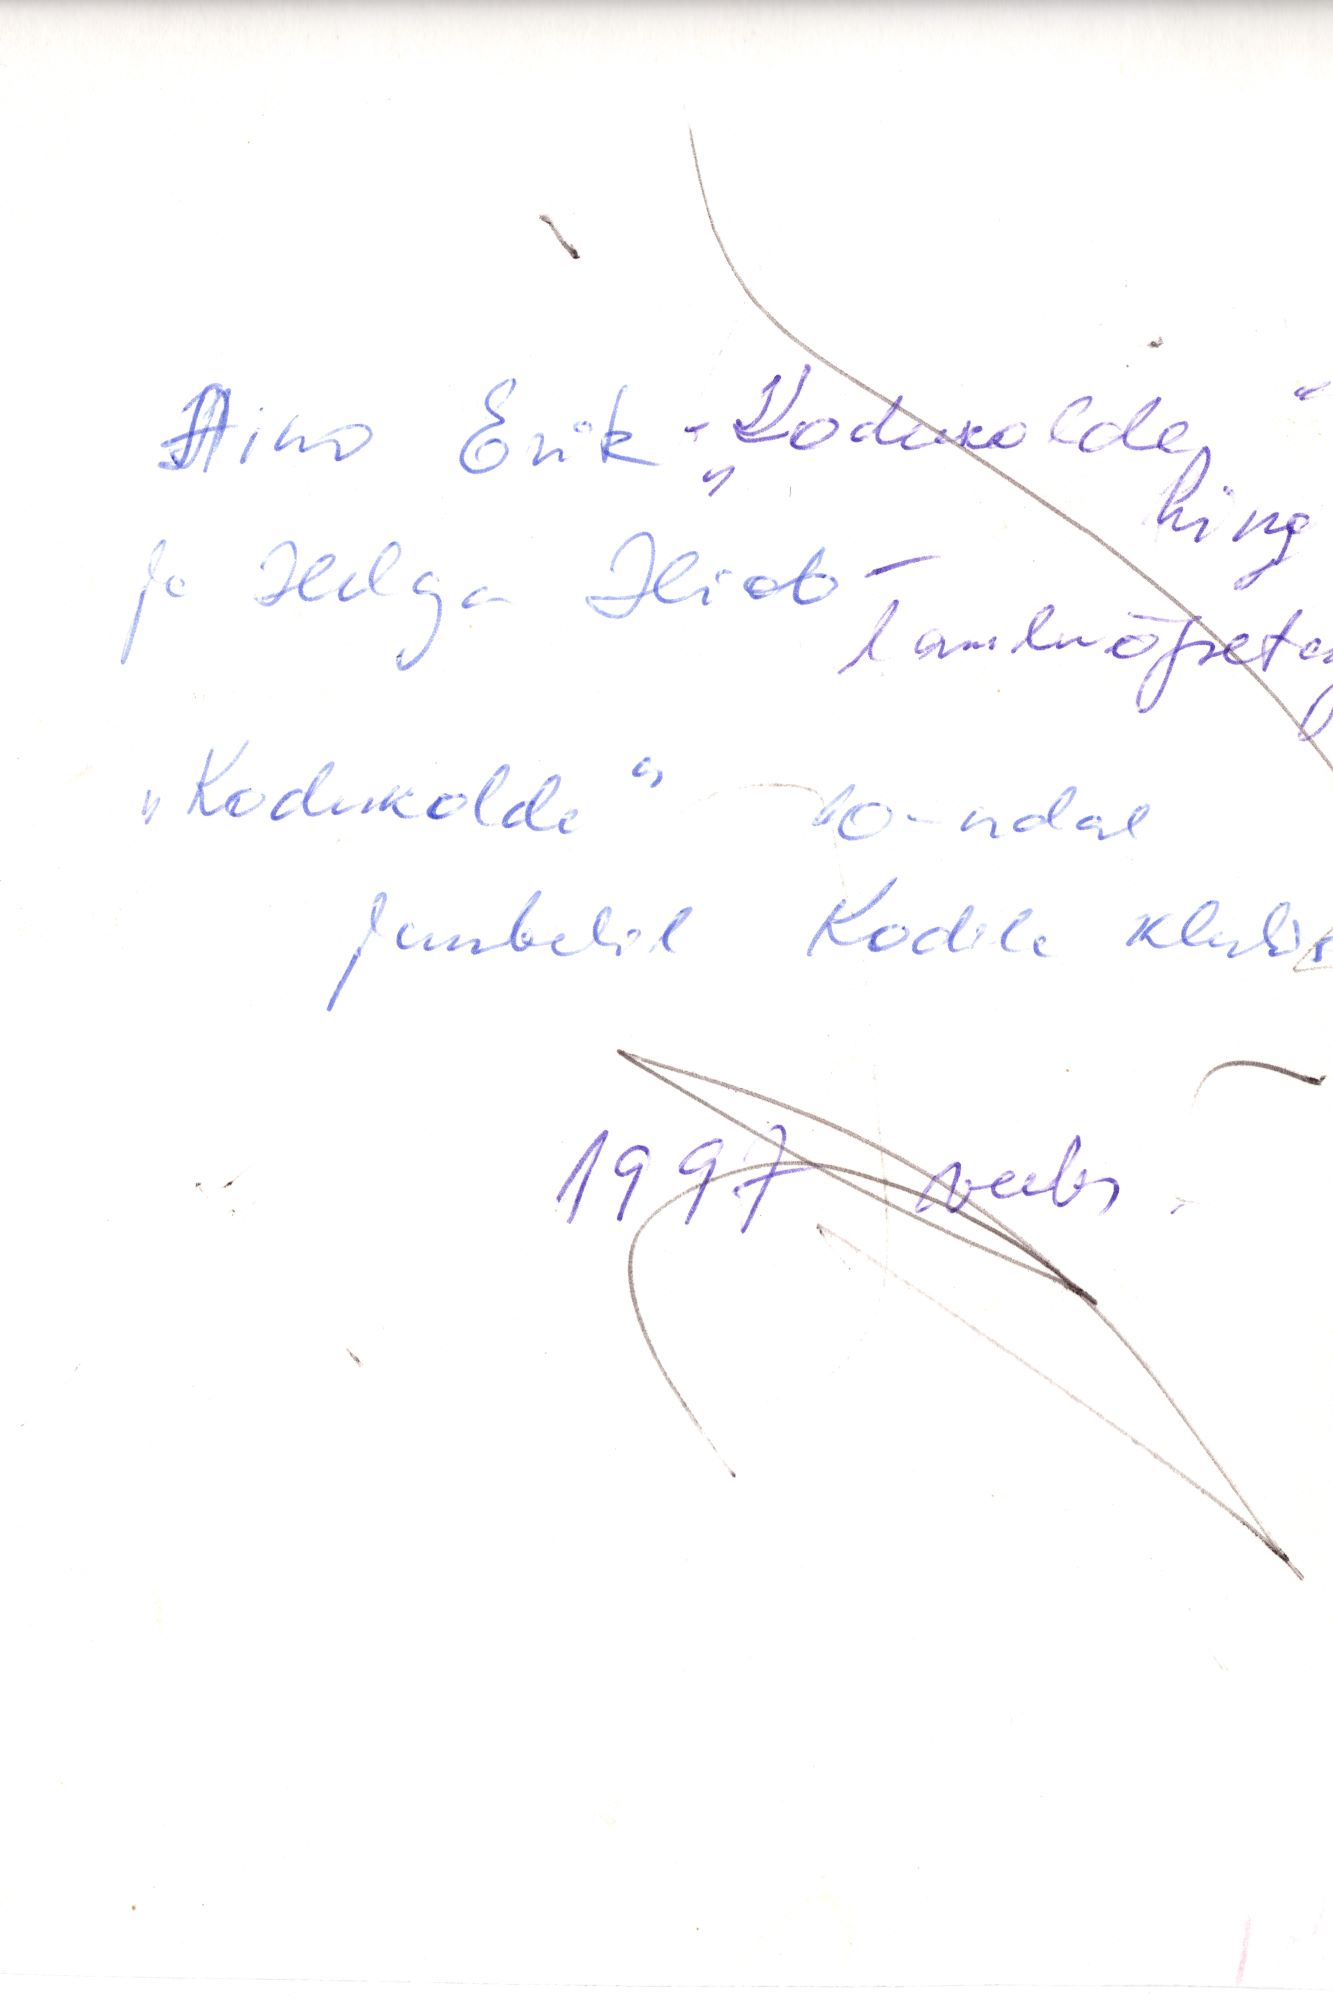 Aino Erik - „Kodukolde“
hing
ja Helga Hiob —
tantsuõpetaj
„Kodukolde“ 10-ndal
juubelil Kodila klubis
1997 veebr.